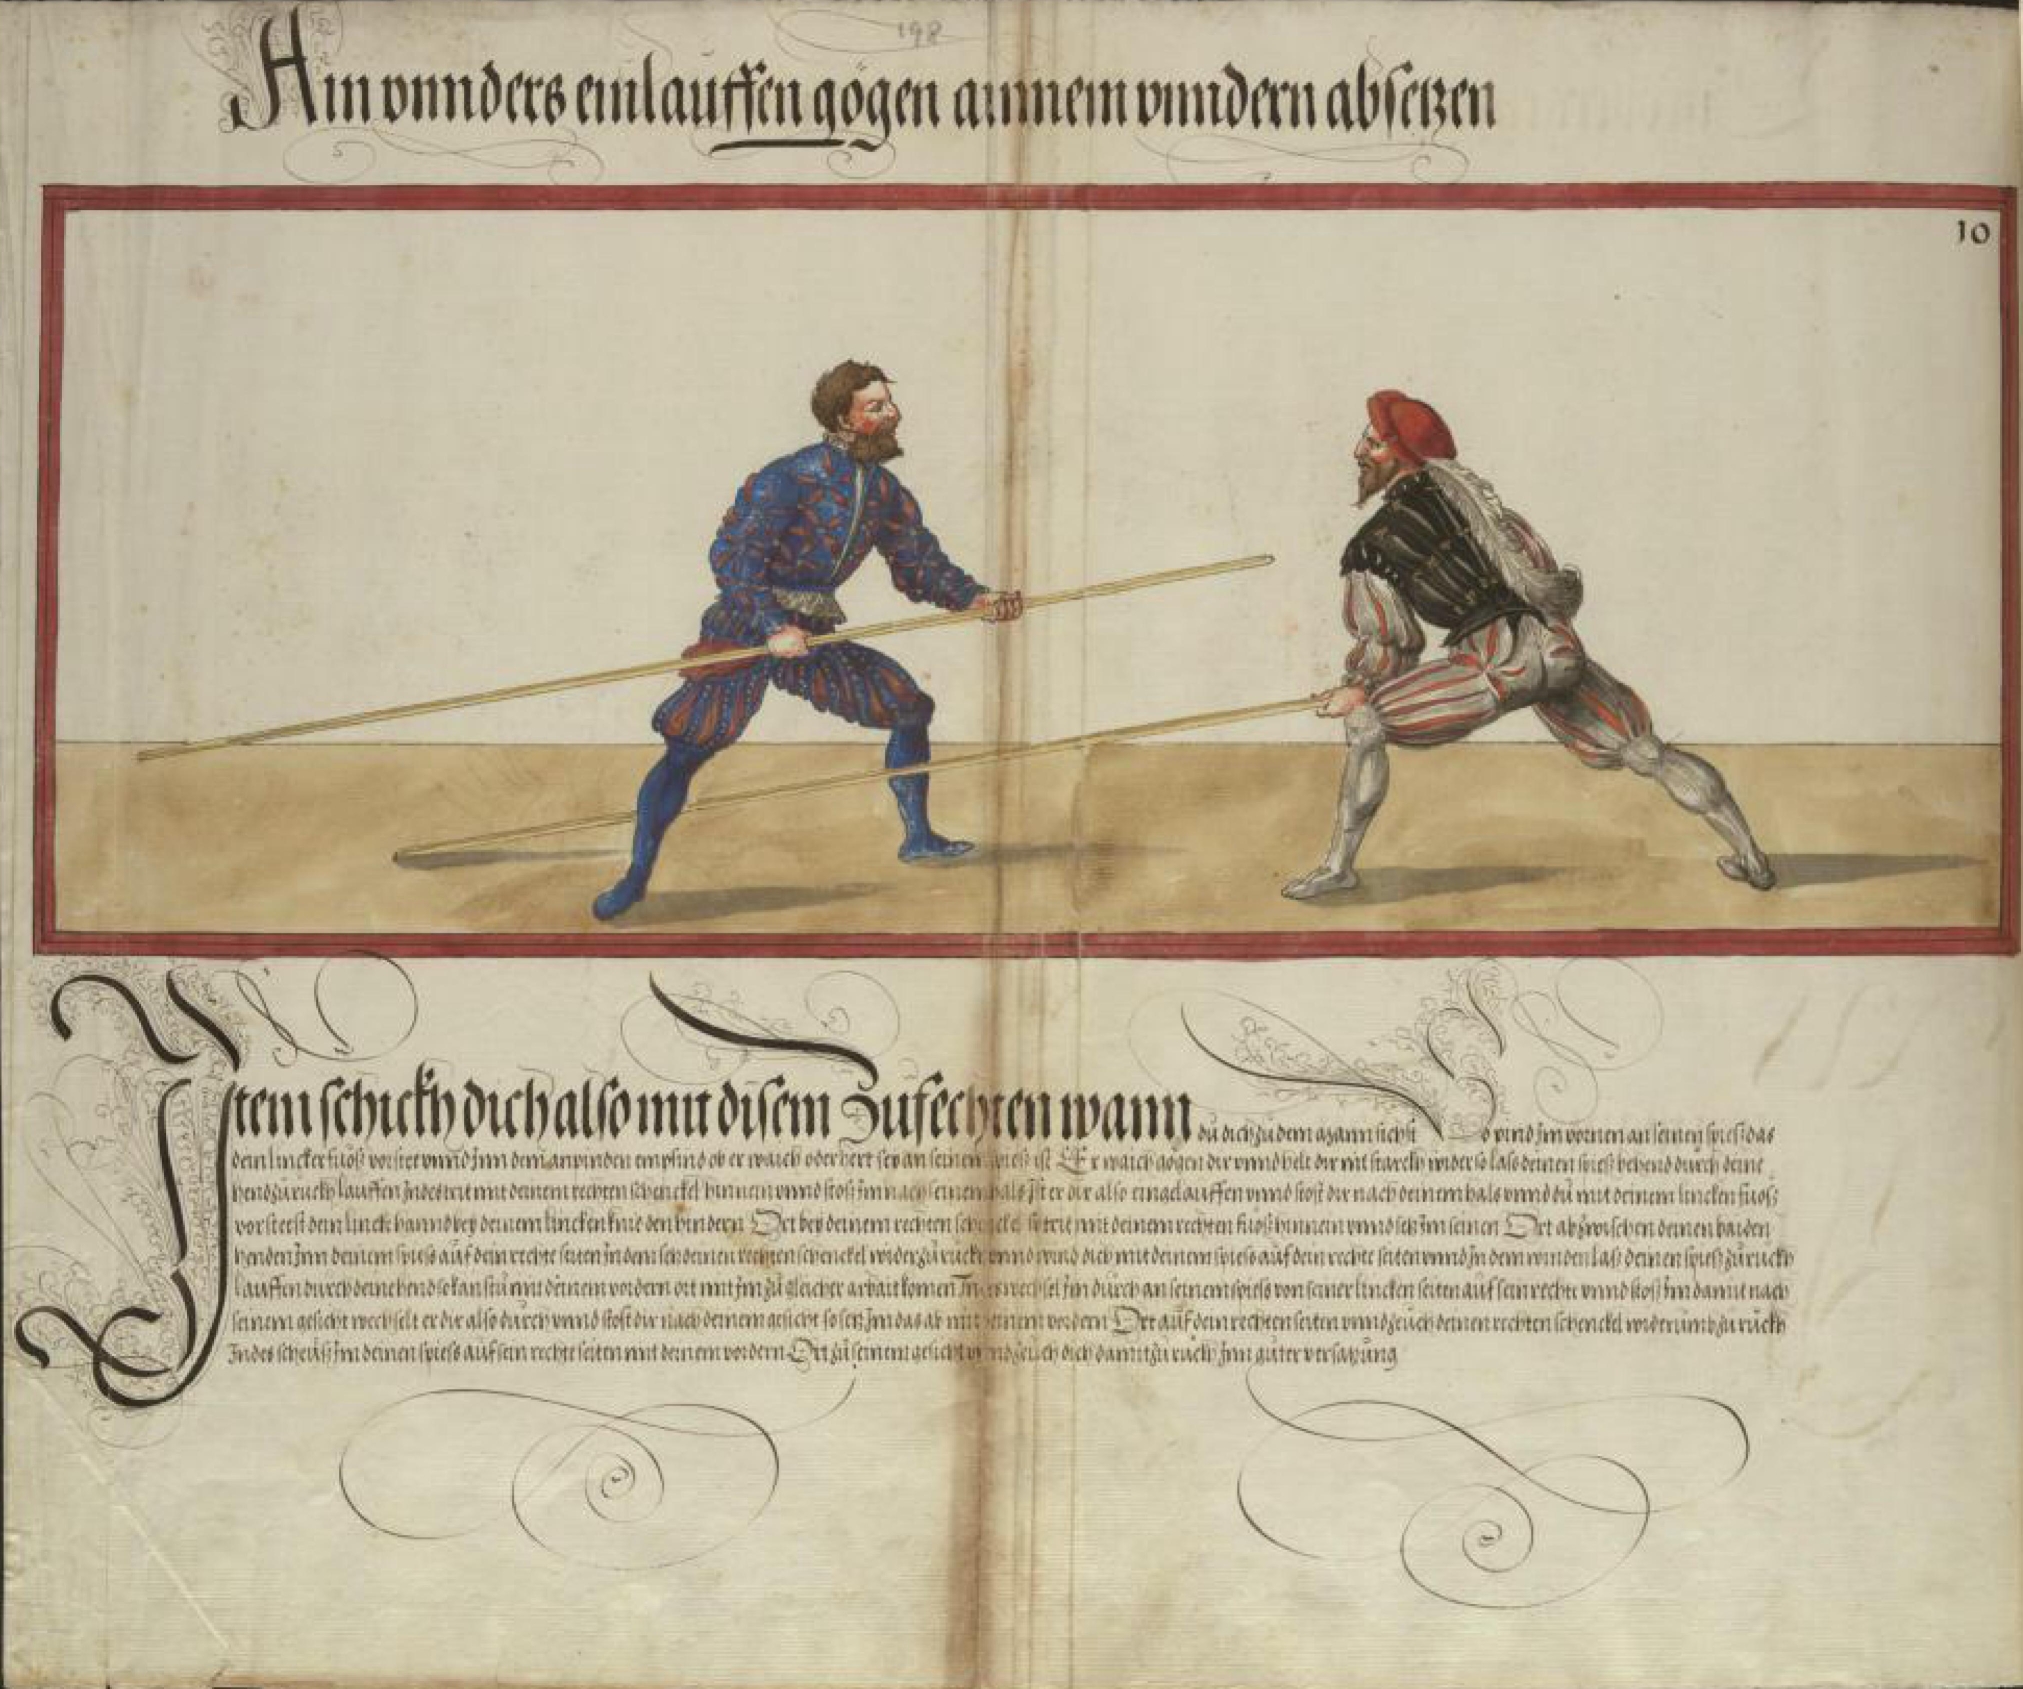 198
Ain annders einlauffen gögen ainnem anndern absetzen
10
Item schickh dich also mit disem Zufechten wann du dich zu dem Mann sichst so bind jm vornen an seinen spiess das
dein lincker fuoß vorstet unnd jnn dem anbinden empfind ob er waich oder hert sey an seinem spieß ist Er waich gögen dir unnd helt dir nit starckh wider so laß deinen spieß behend durch deine
hend zuruckh lauffen Indes trit mit deinem rechten schenckel hinnein unnd stoß jm nach seinem hals Ist er dir also eingelauffen unnd stost dir nach deinem hals unnd du mit deinem lincken fuoß
vorsteest dein linck hannd bey deinem lincken knie den hindern Ort bey deinem rechten schenckel so trit mit deinem rechten fuoß hinnein unnd setz jm seinen Ort ab zwischen deinen baiden
henden jnn deinem spiess auf dein rechte seiten jn dem send deinen rechten schenckel wider zuruckh unnd wind dich mit deinem spiess auf dein rechte seiten unnd jn dem winden laß deinen spieß zuruckh
lauffen durch deine hend so kanstu mit deinem vordern ort mit jm zu gleicher arbait komen Indes wechsel jm durch an seinem spiess von seiner lincken seiten auf sein rechte unnd stoß jm damit nach
seinem gesicht wechselt er dir also durch unnd stost dir nach deinem gesicht so setz jm das ab mit deinem vordern Ort auf dein rechten seiten unnd zeuch deinen rechten schenckel widerumb zuruckh
Indes scheuß jm deinen spiess auf sein rechte seiten mit deinem vordern Ort zu seinem gesicht unnd zeuch dich damit zuruckh jnn guter versatzung